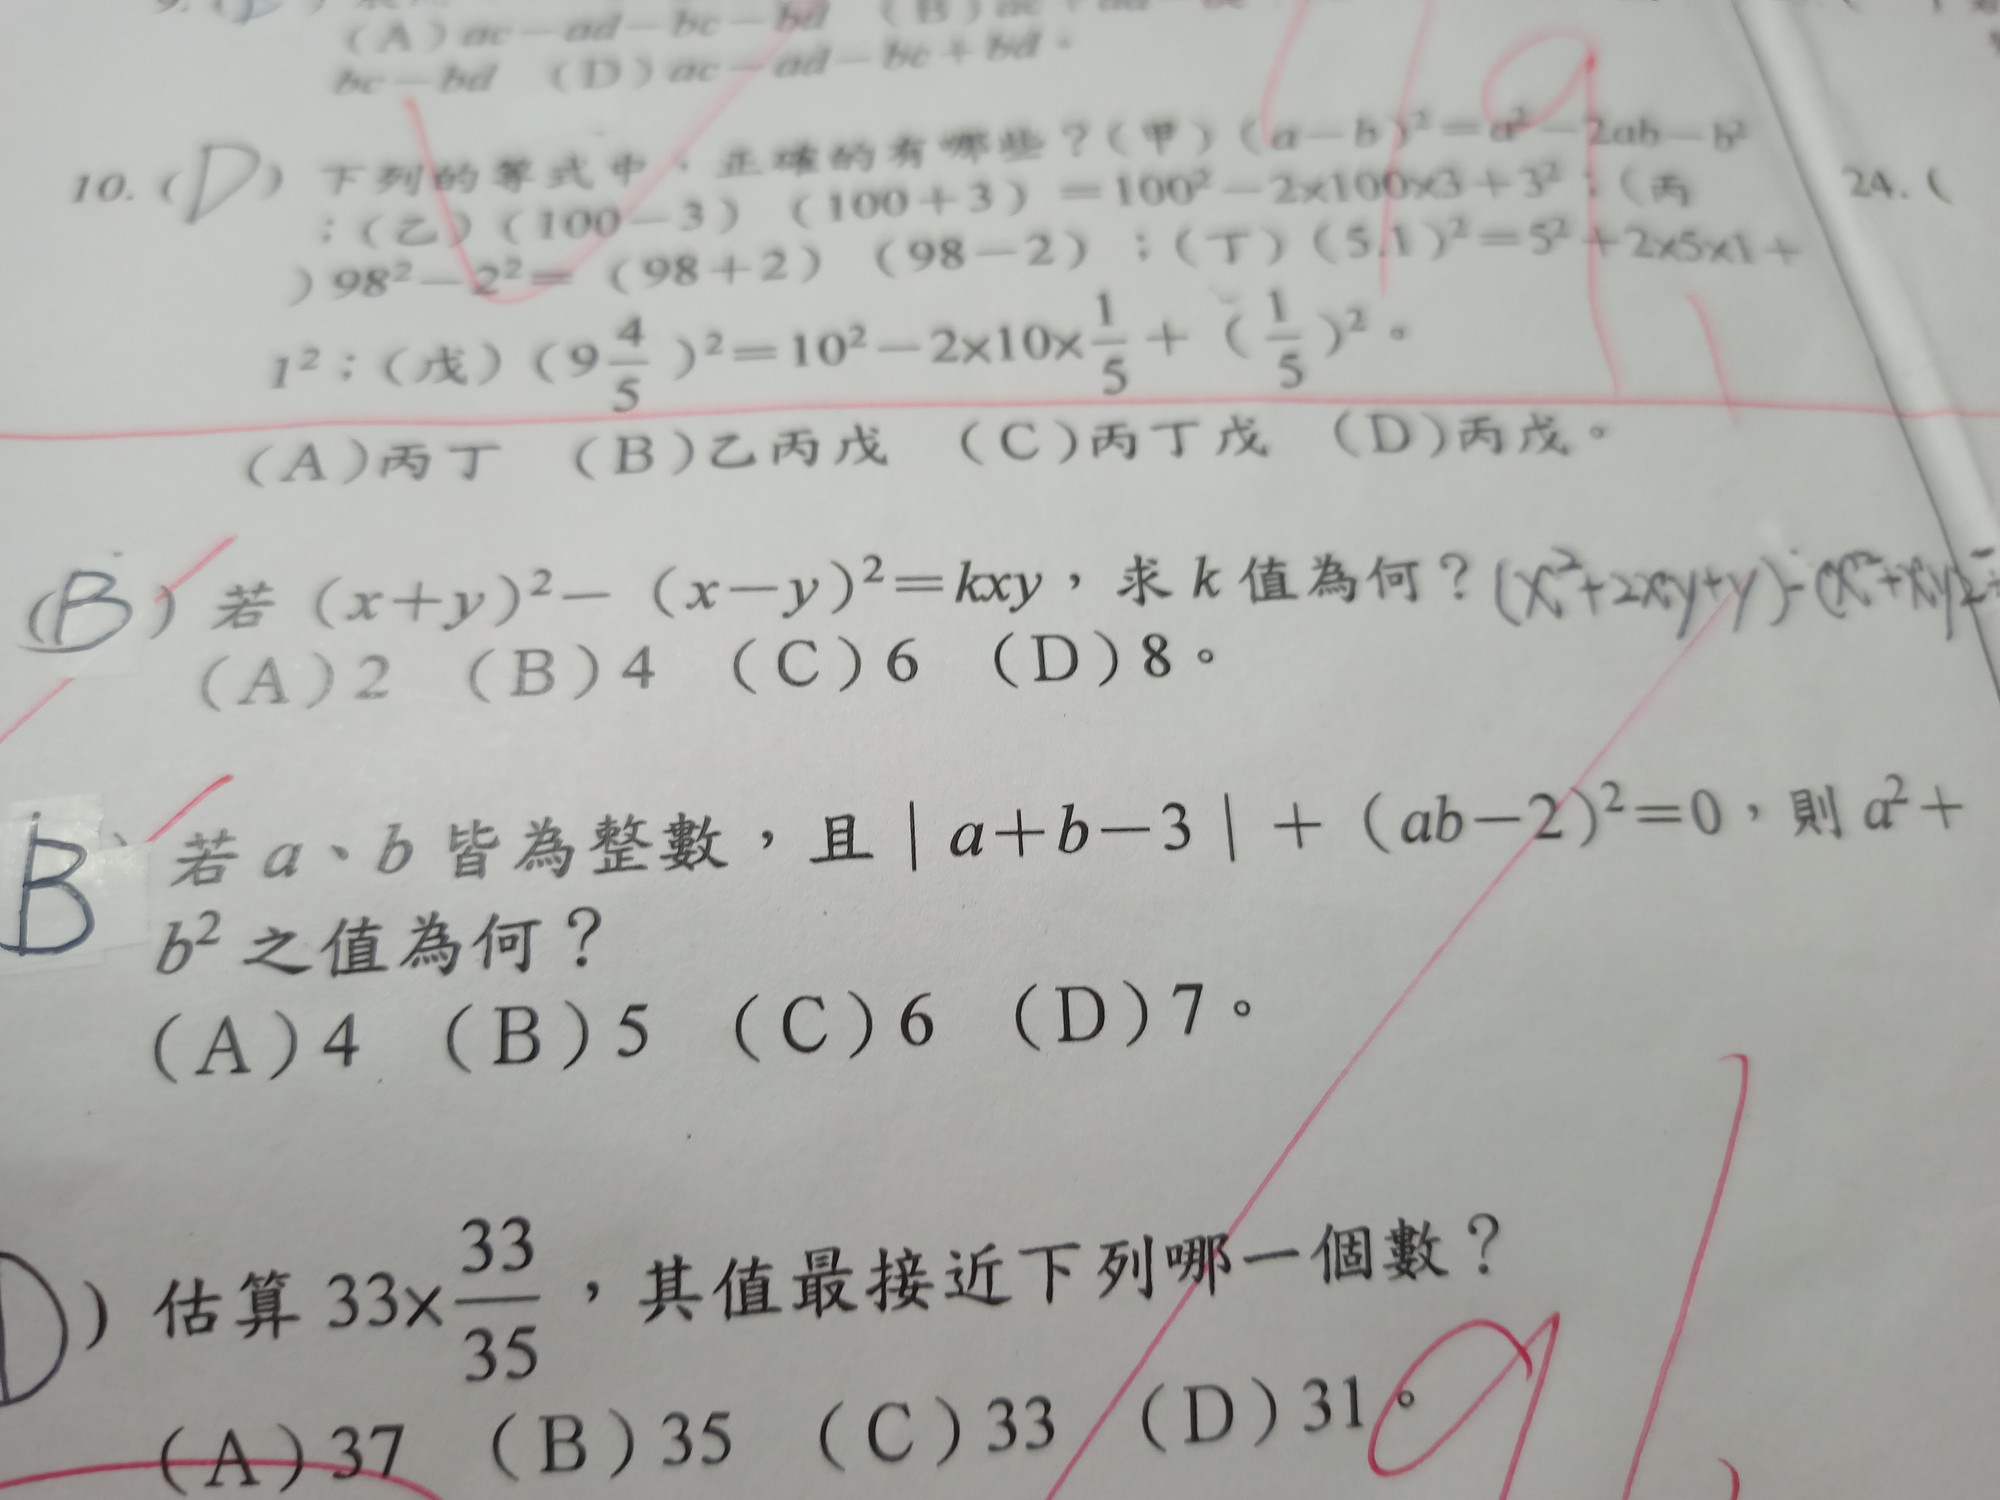 (A)ac－ad－bc－bd (B)
bc－bd (D)ac－ad－bc＋bd。
10.(D) 下列的等式中，正確的有哪些？(甲)(a－b)²＝a²－2ab－b²
；(乙)(100－3)(100＋3)＝100²－2×100×3＋3²；(丙
)98²－2²＝(98＋2)(98－2)；(丁)(5.1)²＝5²＋2×5×1＋
1²；(戊)(9 4/5)²＝10²－2×10×1/5＋(1/5)²。
(A)丙丁 (B)乙丙戊 (C)丙丁戊 (D)丙戊。
24.(
(B) 若(x＋y)²－(x－y)²＝kxy，求k值為何？(x²+2xy+y)-(x²+xy
(A)2 (B)4 (C)6 (D)8。
B ) 若a、b皆為整數，且|a＋b－3|＋(ab－2)²＝0，則a²＋
b²之值為何？
(A)4 (B)5 (C)6 (D)7。
D) 估算33×33/35，其值最接近下列哪一個數？
(A)37 (B)35 (C)33 (D)31。